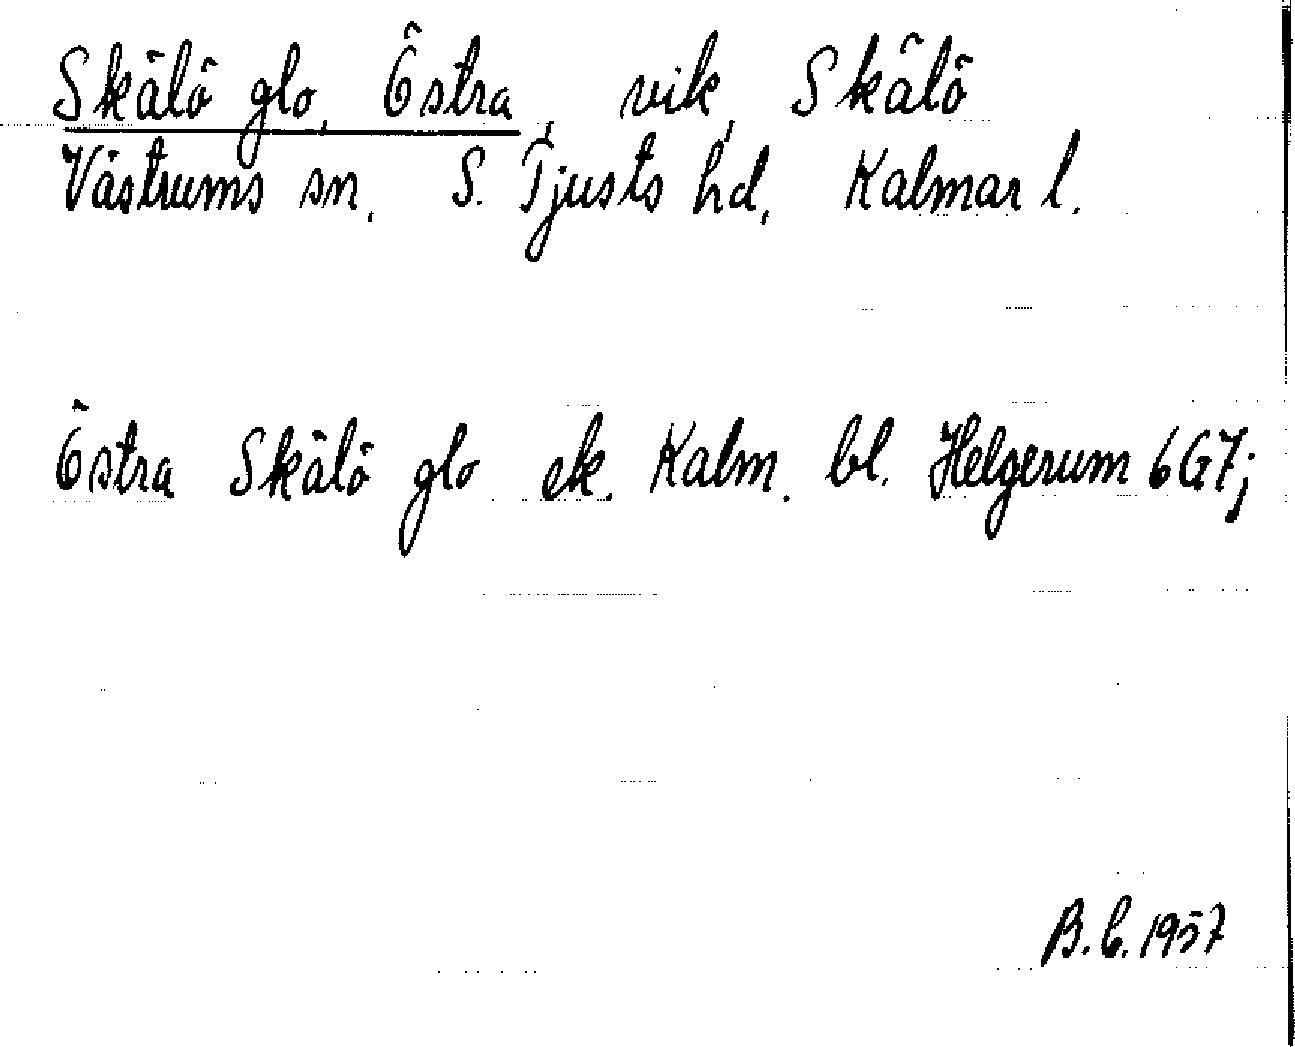 Skälö glo, Östra, vik, Skälö
Västrums sn. S. Tjusts hd, Kalmar l.
Östra Skälö glo ek. Kalm. bl. Helgerum 6G7;
B.C. 1957